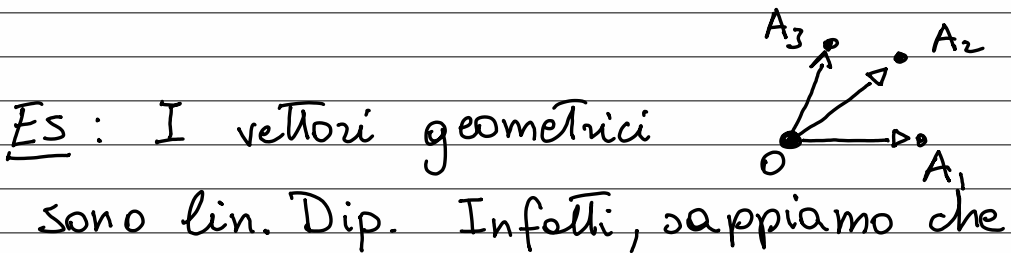 A3 A2
Es : I vettori geometrici
O A1
sono lin. Dip. Infatti, sappiamo che